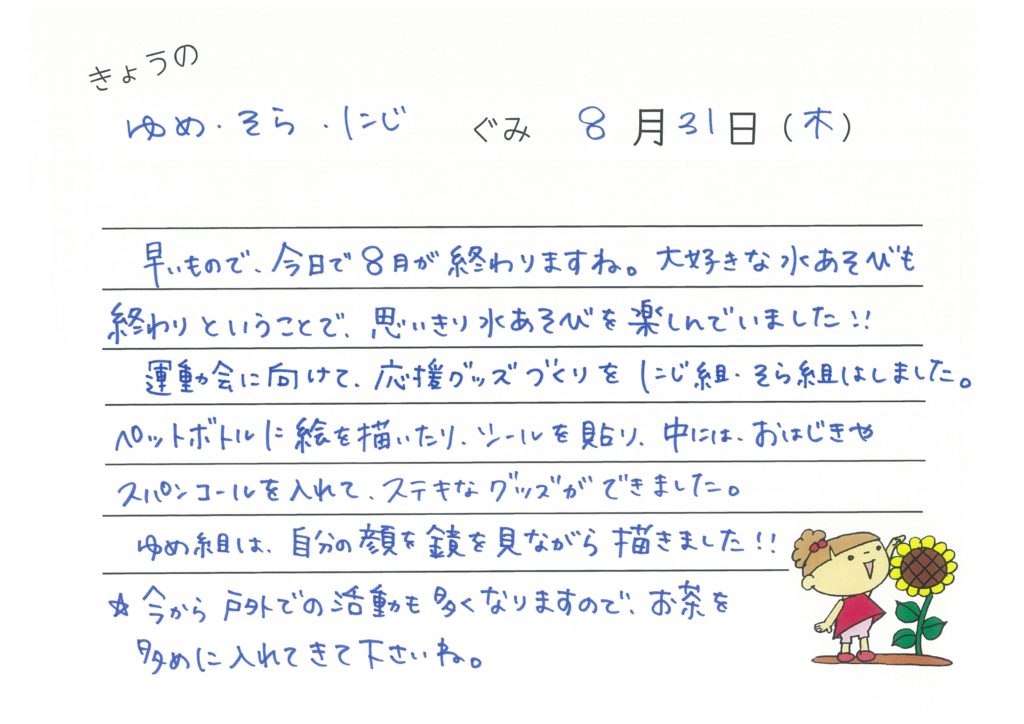 きょうの
ゆめ・そら・にじ ぐみ 8月31日(木)
早いもので、今日で8月が終わりますね。大好きな水あそびも
終わりということで、思いきり水あそびを楽しんでいました!!
運動会に向けて、応援グッズづくりをにじ組・そら組はしました。
ペットボトルに絵を描いたり、シールを貼り、中には、おはじきや
スパンコールを入れて、ステキなグッズができました。
ゆめ組は、自分の顔を鏡を見ながら描きました!!
☆今から戸外での活動も多くなりますので、お茶を
多めに入れてきて下さいね。